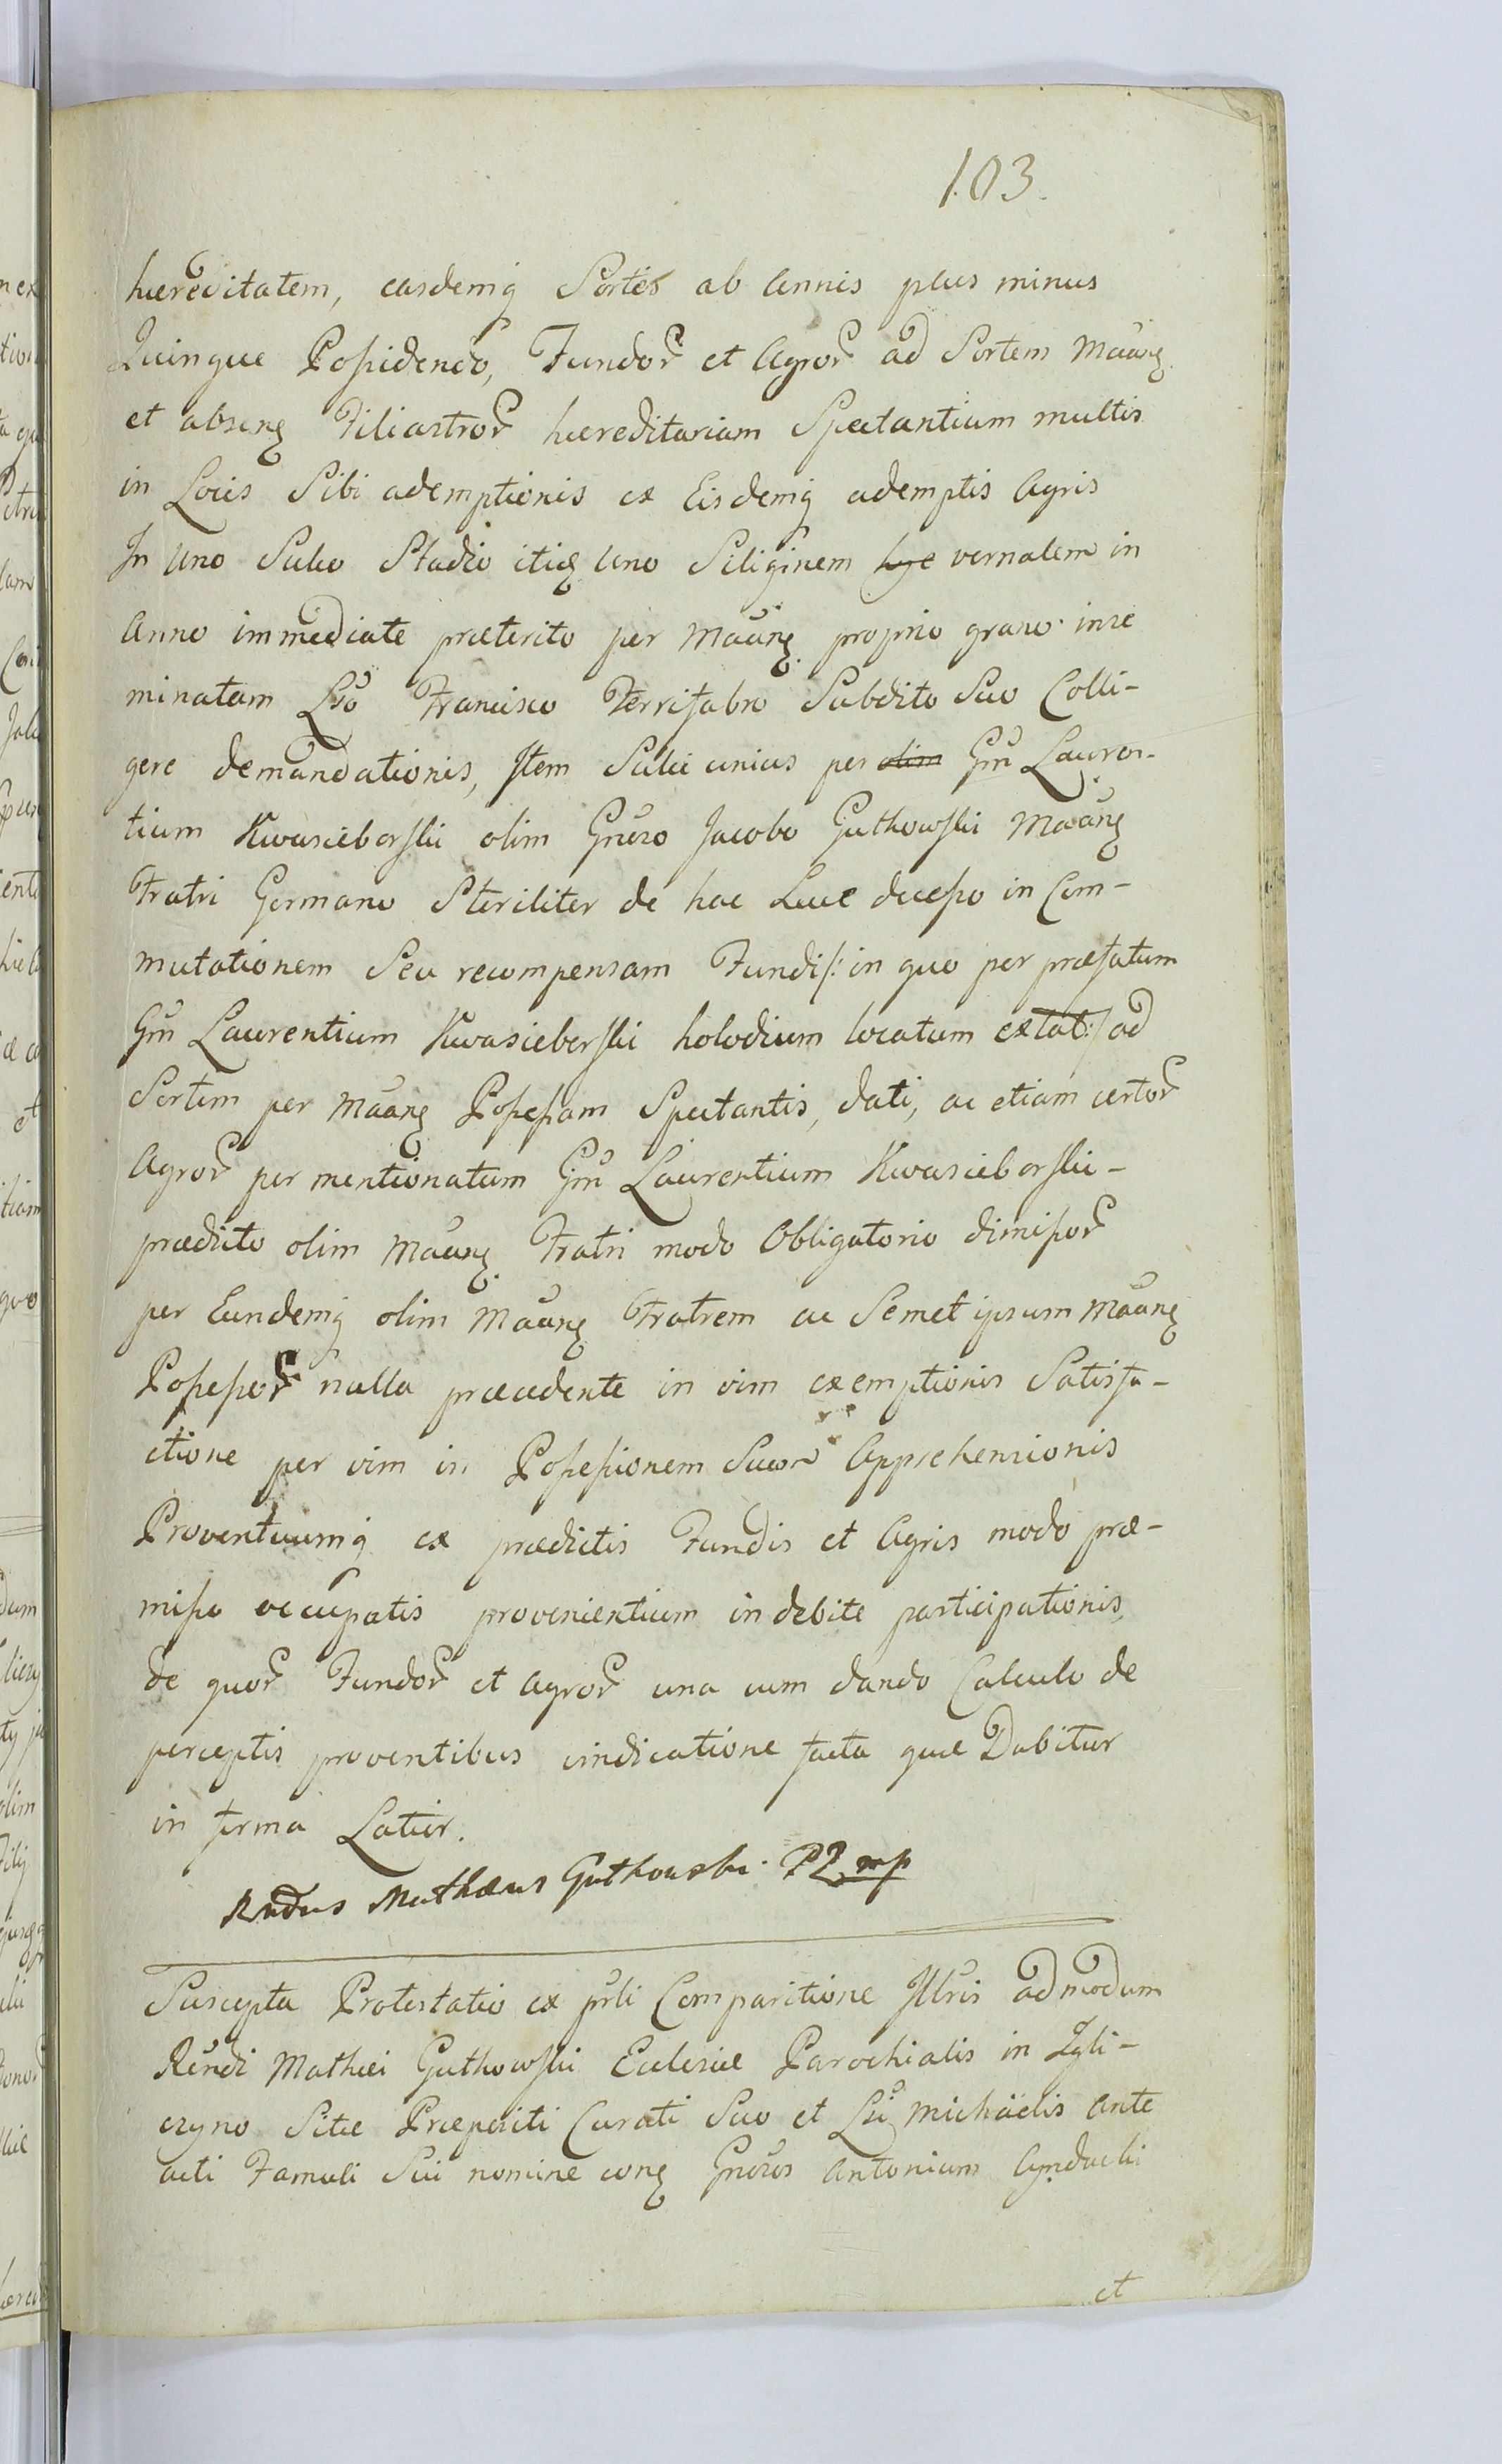 103.
hæreditatem, easdemq Sortes ab Annis plus minus
Quinque Possidendo, Fundor et Agror ad Sortem Maanq
et absenq Filiastror hæreditariam Spectantium multis
in Locis Sibi ademptionis ex Eisdemq ademptis Agris
In Uno Sulco Stadio itidq Uno Siliginem hye vernalem in
Anno immediate præterito per Maanq proprio grano inse
minatam Lbo Francisco Ferrifabro Subdito Suo Colli-
gere demandationis, Item Sulci unius per olim Gm Lauren-
tium Kwasieborski olim Gnroso Jacobo Guthowski Maanq
Fratri Germano Steriliter de hac Luce decesso in Com-
mutationem Seu recompensam Fundi /: in quo per præfatum
Gm Laurentium Kwasieborski holodium locatum extat :/ ad
Sortem per Maanq Possessam Spectantis, dati, ac etiam certor
Agror per mentionatum Gm Laurentium Kwasieborski-
prædicto olim Maanq Fratri modo Obligatorio dimissor
per Eundemq olim Maanq Fratrem ac Semet ipsum Maanq
Possessor nulla præcedente in vim exemptionis Satisfa-
ctione per vim in Possessionem Suam Apprehensionis
Proventuumq ex prædictis Fundis et Agris modo præ-
misso occupatis provenientium indebite participationis,
de quor Fundor et Agror una cum dando Calculo de
perceptis proventibus vindicatione facta quæ Dabitur
in forma Latior.
Rndus Mathæus Guthowski PZ mp
Suscepta Protestatio ex prli Comparitione Illris admodum
Rendi Mathæi Guthowski Ecclesiæ Parochialis in Zgli-
czyno Sitæ Præpositi Curati Suo et Lbi Michaelis Ante
acti Famuli Sui nomine conq Gnrosos Antonium Cynducki
et